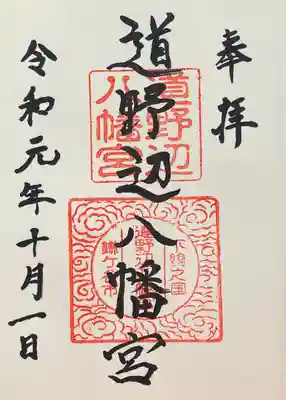 奉拝
道野辺八幡宮
道野辺
八幡宮
下総之国
鎌ヶ谷市
令和元年十月一日